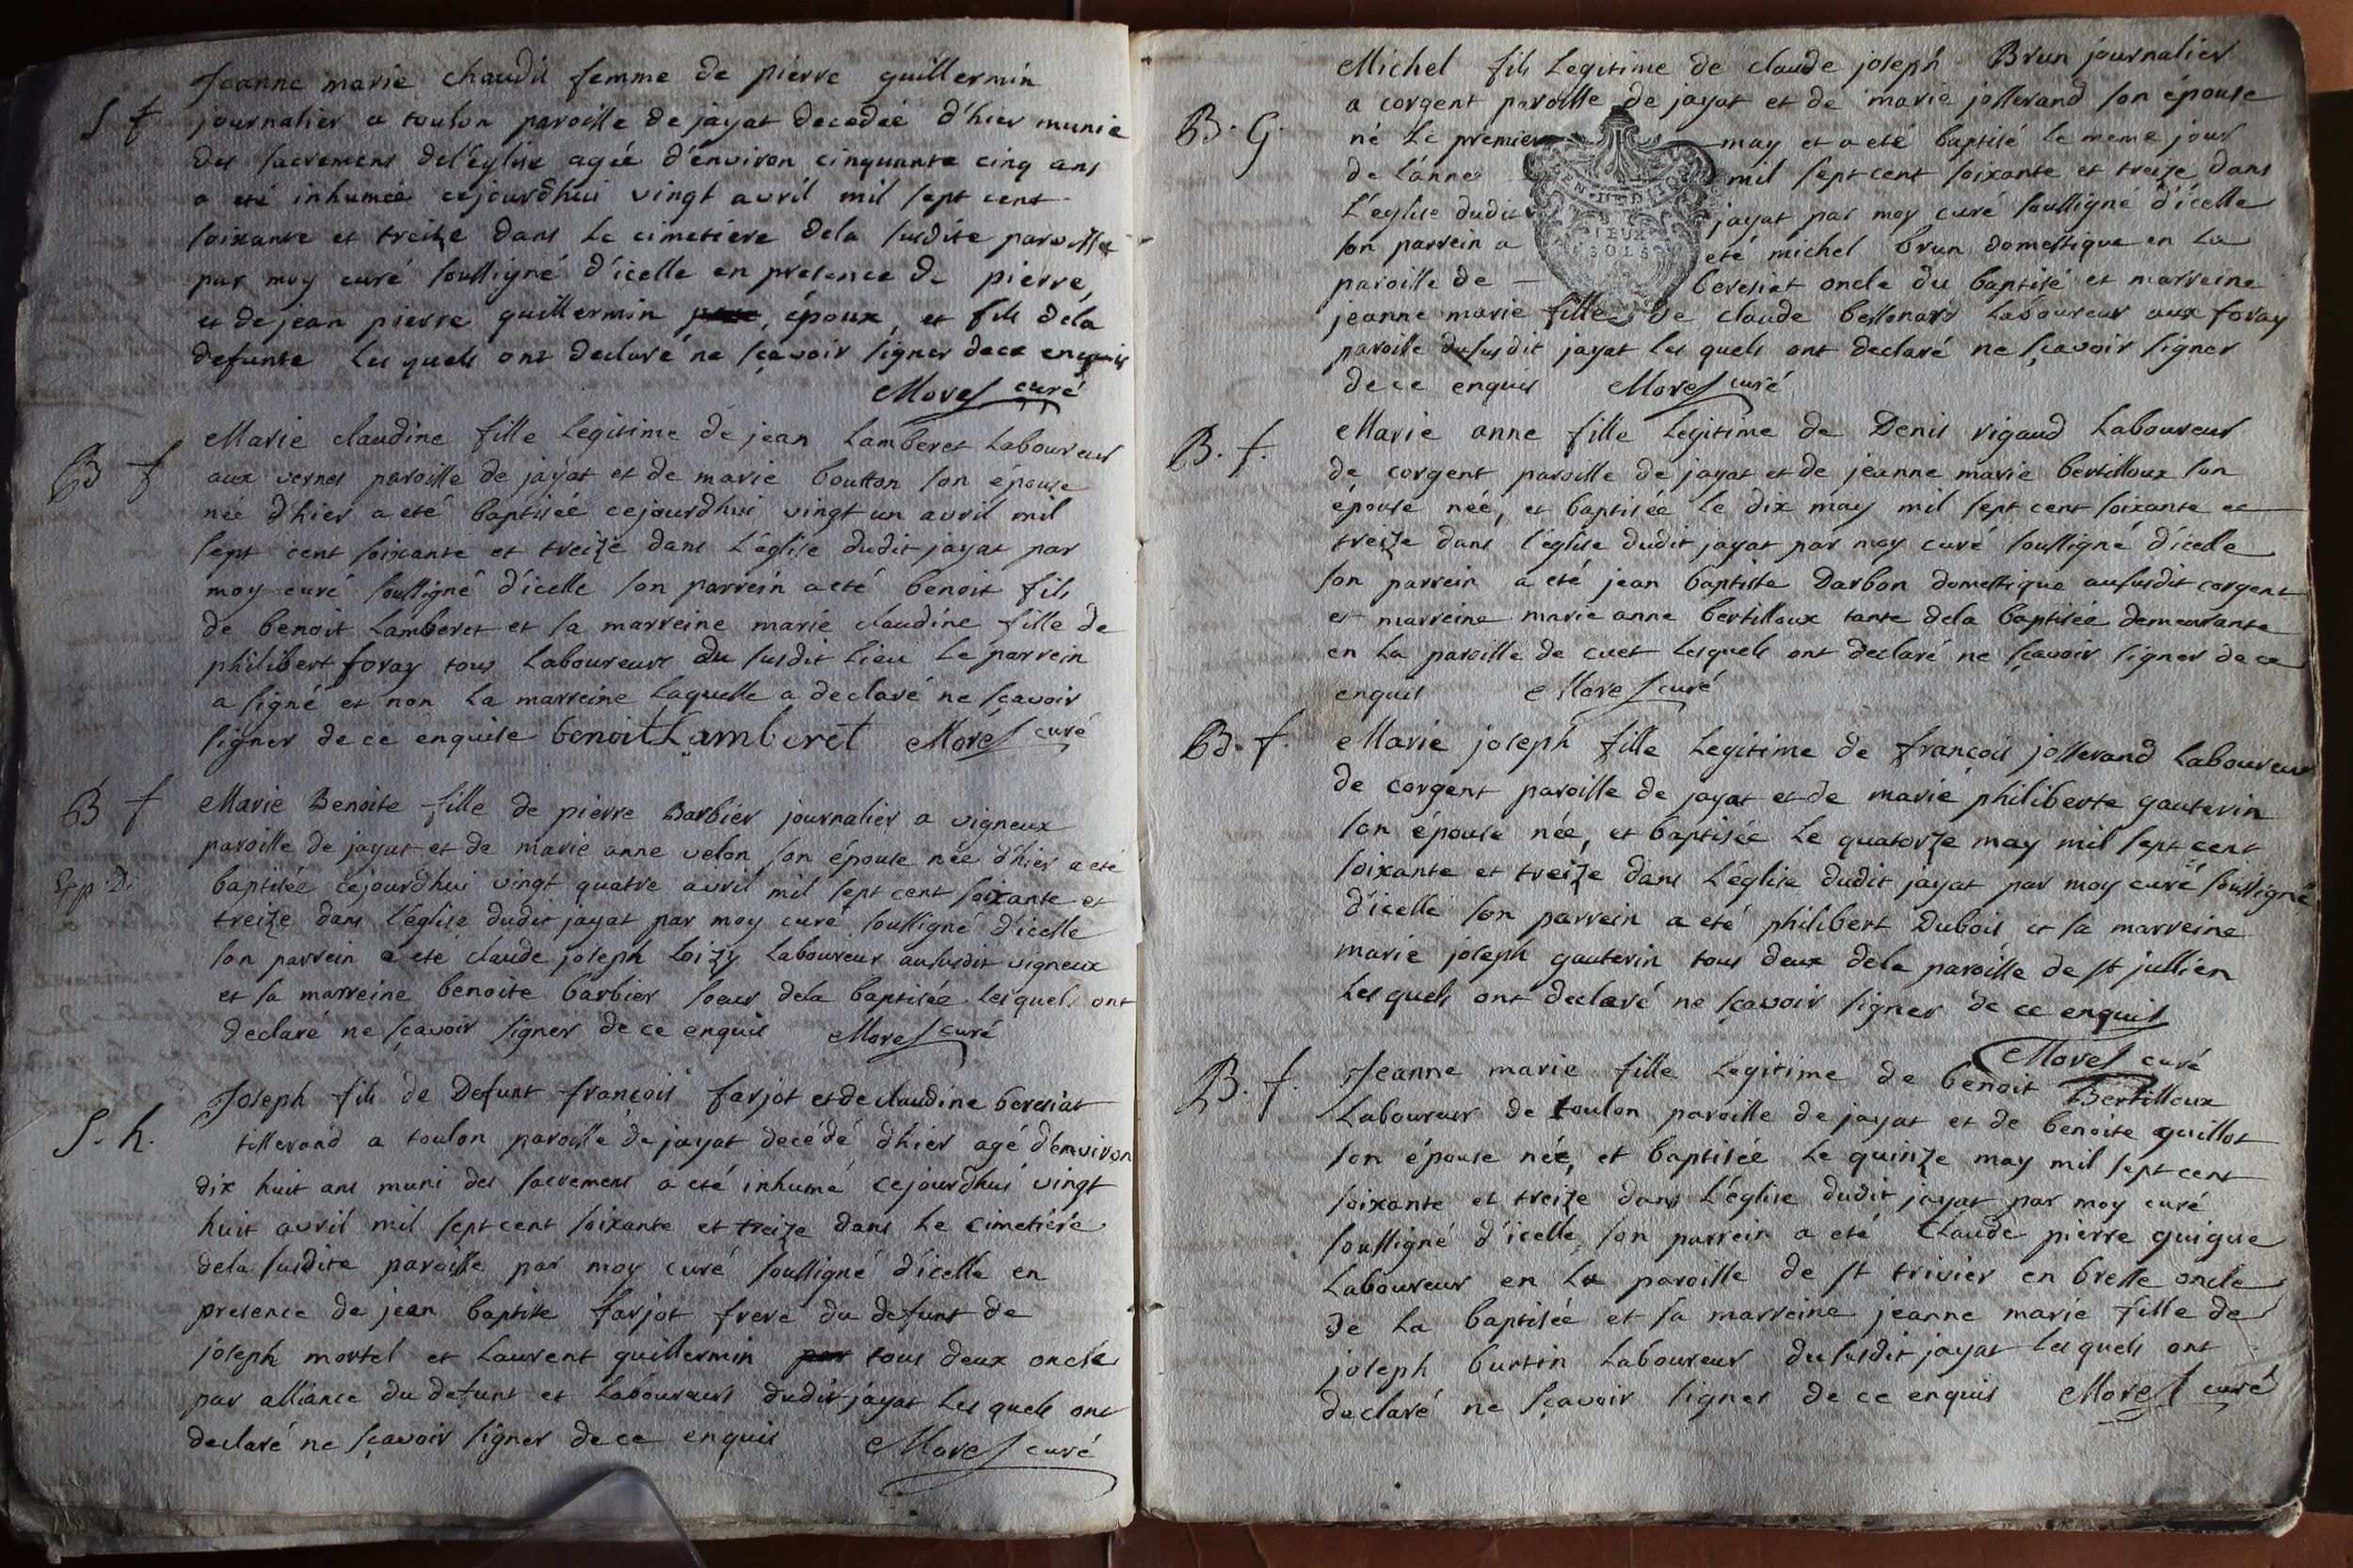 Jeanne marie chaudii femme de pierre guillermin
S f journalier a toulon paroisse de jayat decedée d'hier munie
des sacremens del'eglise agée d'environ cinquante cinq ans
a eté inhumée cejourdhui vingt avril mil sept cent
soixante et treize dans le cimetiere dela susdite paroisse
par moy curé soussigné d'icelle en presence de pierre,
et de jean pierre guillermin , époux, et fils dela
defunte les quels ont declaré ne sçavoir signer dece enquis
Morel curé
Marie claudine fille legitime de jean Lamberet Laboureur
B f aux vernes paroisse de jayat et de marie boutton son épouse
née d'hier a eté baptisée cejourdhui vingt un avril mil
sept cent soixante et treize dans l'église dudit jayat par
moy curé soussigné d'icelle son parrein a eté benoit fils
de benoit Lamberet et sa marreine marie claudine fille de
philibert foray tous Laboureurs du susdit lieu le parrein
a signé et non la marreine laquelle a declaré ne sçavoir
signer de ce enquise benoit Lamberet Morel curé
B f Marie Benoite fille de pierre Barbier journalier a vigneux
paroisse de jayat et de marie anne velon son épouse née d'hier a eté
baptisée cejourdhui vingt quatre avril mil sept cent soixante et
treize dans l'église dudit jayat par moy curé soussigné d'icelle
son parrein a eté claude joseph Loizy Laboureur aususdit vigneux
et sa marreine benoite barbier soeur dela baptisée lesquels ont
declaré ne sçavoir signer de ce enquis Morel curé
Joseph fils de Defunt françois farjot et de claudine beresiat
S. h. tisserand a toulon paroisse de jayat decédé d'hier agé d'environ
dix huit ans muni des sacremens a eté inhumé cejourdhui vingt
huit avril mil sept cent soixante et treize dans le cimetiére
dela susdite paroisse par moy curé soussigné d'icelle en
presence de jean baptiste farjot frere du defunt de
joseph mortel et Laurent guillermin tous deux oncle
par alliance du defunt et Laboureurs dudit jayat les quels ont
declaré ne sçavoir signer de ce enquis Morel curé
Michel fils legitime de claude joseph Brun journalier
a corgent paroisse de jayat et de marie josserand son épouse
B. G. né le premier may et a eté baptisé le meme jour
de l'année mil sept cent soixante et treize dans
l'eglise dudit jayat par moy curé soussigné d'icelle
son parrein a eté michel brun domestique en la
paroisse de beresiat oncle du baptisé et marreine
jeanne marie fille de claude bessonard Laboureur aux foray
paroisse du susdit jayat les quels ont declaré ne sçavoir signer
de ce enquis Morel curé
B. f. Marie anne fille legitime de Denis rigaud Laboureur
de corgent paroisse de jayat et de jeanne marie bertilloux son
épouse née, et baptisée le dix may mil sept cent soixante et
treize dans l'église dudit jayat par moy curé soussigné d'icelle
son parrein a eté jean baptiste Darbon domestique ausudit corgent
et marreine marie anne bertilloux tante dela baptisée demeurante
en la paroisse de cuet lesquels ont declaré ne sçavoir signer de ce
enquis Morel curé
B. f. Marie joseph fille legitime de françois josserand Laboureur
de corgent paroisse de jayat et de marie philiberte gauterin
son épouse née, et baptisée le quatorze may mil sept cent
soixante et treize dans l'église dudit jayat par moy curé soussigné
d'icelle son parrein a eté philibert Dubois et sa marreine
marie joseph gauterin tous deux dela paroisse de st jullien
les quels ont declaré ne sçavoir signer de ce enquis
Morel curé
B. f. Jeanne marie fille legitime de benoit Bertilloux
Laboureur de toulon paroisse de jayat et de benoite guillot
son épouse née, et baptisée le quinze may mil sept cent
soixante et treize dans l'église dudit jayat par moy curé
soussigné d'icelle, son parrein a eté Claude pierre guigue
Laboureur en la paroisse de st trivier en bresse oncle
de la baptisée et sa marreine jeanne marie fille de
joseph burtin Laboureur du susdit jayat les quels ont
declaré ne sçavoir signer de ce enquis Morel curé